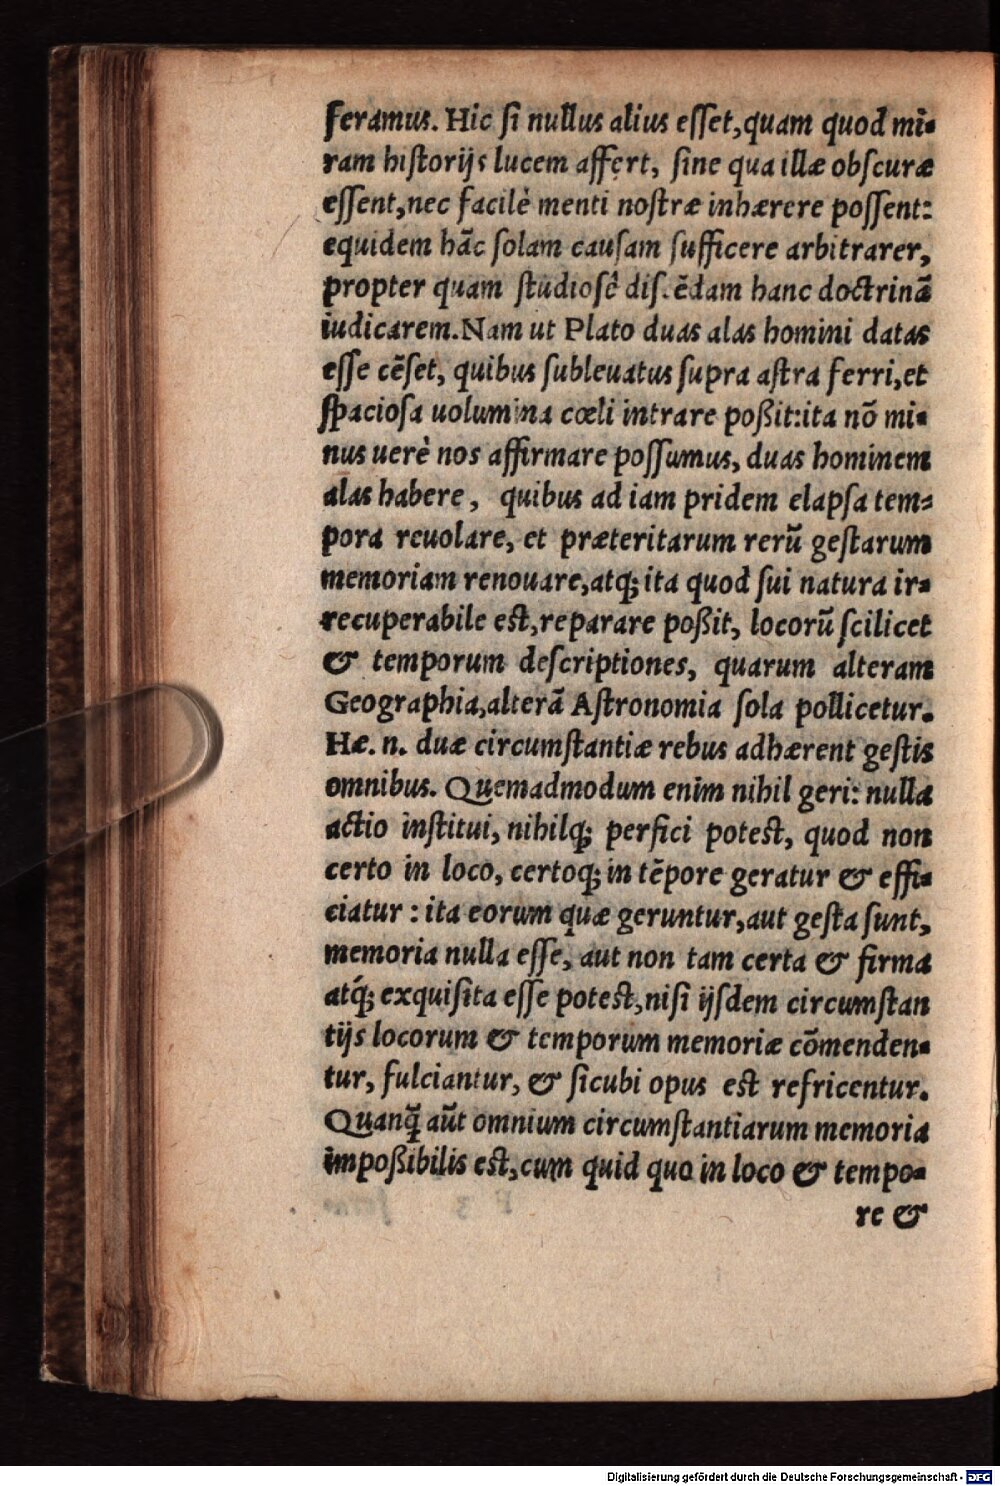 feramus. Hic ſi nullus alius eſſet, quam quod mi-
ram hiſtorijs lucem affert, ſine qua illæ obſcuræ
eſſent, nec facilè menti noſtræ inhærere poſſent:
equidem hãc ſolam cauſam ſufficere arbitrarer,
propter quam ſtudioſè diſcẽdam hanc doctrinã
iudicarem. Nam ut Plato duas alas homini datas
eſſe cẽſet, quibus ſubleuatus ſupra aſtra ferri, et
ſpacioſa uolumina cœli intrare poßit: ita nõ mi-
nus uerè nos affirmare poſſumus, duas hominem
alas habere, quibus ad iam pridem elapſa tem-
pora reuolare, et præteritarum rerũ geſtarum
memoriam renouare, atq; ita quod ſui natura ir-
recuperabile eſt, reparare poßit, locorũ ſcilicet
& temporum deſcriptiones, quarum alteram
Geographia, alterã Aſtronomia ſola pollicetur.
Hæ. n. duæ circumſtantiæ rebus adhærent geſtis
omnibus. Quemadmodum enim nihil geri: nulla
actio inſtitui, nihilq; perfici poteſt, quod non
certo in loco, certoq; in tẽpore geratur & effi-
ciatur: ita eorum quæ geruntur, aut geſta ſunt,
memoria nulla eſſe, aut non tam certa & firma
atq́; exquiſita eſſe poteſt, niſi ijſdem circumſtan
tijs locorum & temporum memoriæ cõmenden-
tur, fulciantur, & ſicubi opus eſt refricentur.
Quanq̃ aũt omnium circumſtantiarum memoria
impoßibilis eſt, cum quid quo in loco & tempo-
re &
Digitalisierung gefördert durch die Deutsche Forschungsgemeinschaft - DFG